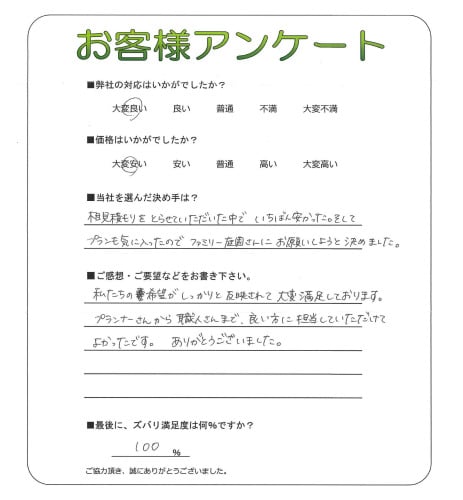 お客様アンケート
■弊社の対応はいかがでしたか？
大変良い 良い 普通 不満 大変不満
■価格はいかがでしたか？
大変安い 安い 普通 高い 大変高い
■当社を選んだ決め手は？
相見積もりをとらせていただいた中で いちばん安かった。そして
プランも気に入ったので ファミリー庭園さんに お願いしようと 決めました。
■ご感想・ご要望などをお書き下さい。
私たちの 希望が しっかりと 反映されて 大変 満足しております。
プランナーさんから 職人さんまで、良い方に 担当していただけて
よかったです。 ありがとうございました。
■最後に、ズバリ満足度は何%ですか？
100 %
ご協力頂き、誠にありがとうございました。